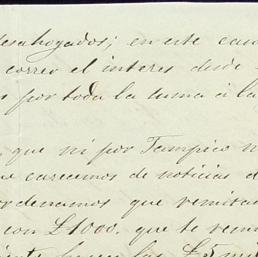 desahogados; en este cas
correo el interes desde
s por toda la suma á la
que ni por Tampico n
ue carecemos de noticias d
ordenamos que remitan
con £1000. que te remi